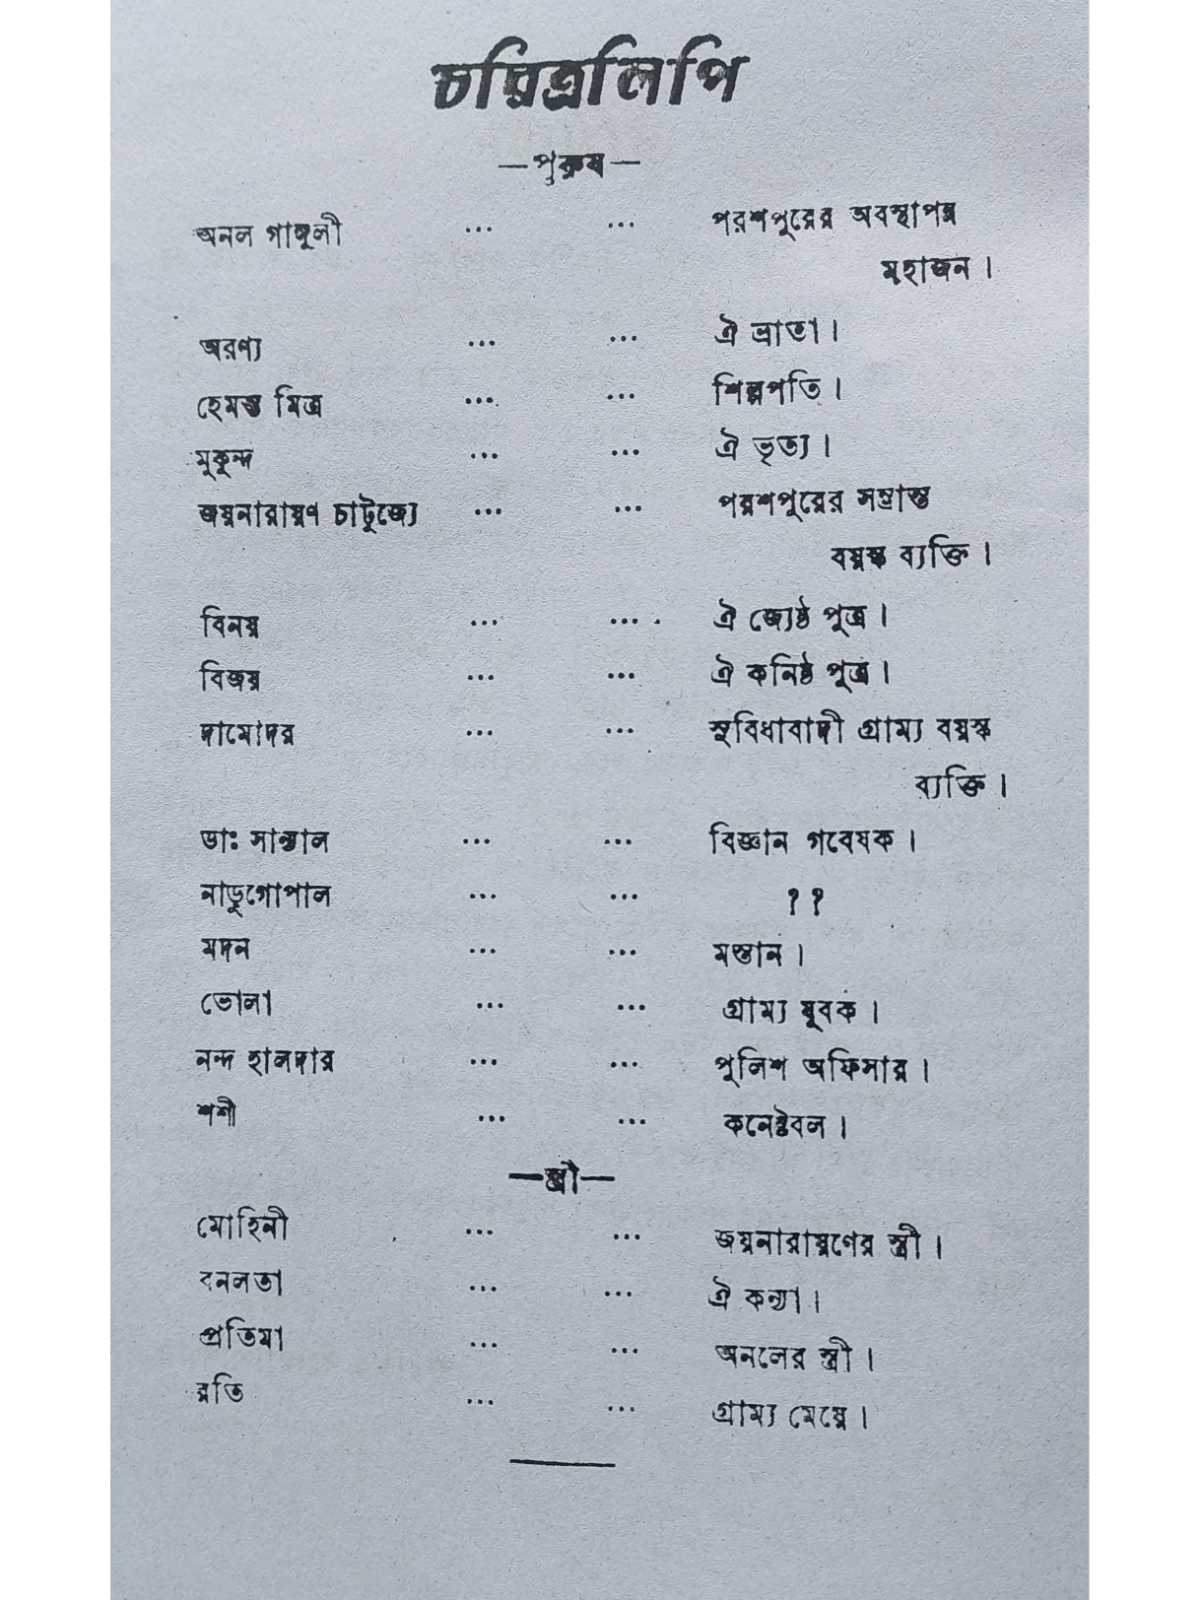 চরিত্রলিপি
—পুরুষ—
অনল গাঙ্গুলী ... ... পরশপুরের অবস্থাপন্ন
মহাজন।
অরণ্য ... ... ঐ ভ্রাতা।
হেমন্ত মিত্র ... ... শিল্পপতি।
মুকুন্দ ... ... ঐ ভৃত্য।
জয়নারায়ণ চাটুজ্যে ... ... পরশপুরের সম্ভ্রান্ত
বয়স্ক ব্যক্তি।
বিনয় ... ... ঐ জ্যেষ্ঠ পুত্র।
বিজয় ... ... ঐ কনিষ্ঠ পুত্র।
দামোদর ... ... সুবিধাবাদী গ্রাম্য বয়স্ক
ব্যক্তি।
ডাঃ সান্তাল ... ... বিজ্ঞান গবেষক।
নাড়ুগোপাল ... ... ??
মদন ... ... মস্তান।
ভোলা ... ... গ্রাম্য যুবক।
নন্দ হালদার ... ... পুলিশ অফিসার।
শশী ... ... কনেষ্টবল।
—স্ত্রী—
মোহিনী ... ... জয়নারায়ণের স্ত্রী।
বনলতা ... ... ঐ কন্যা।
প্রতিমা ... ... অনলের স্ত্রী।
রতি ... ... গ্রাম্য মেয়ে।